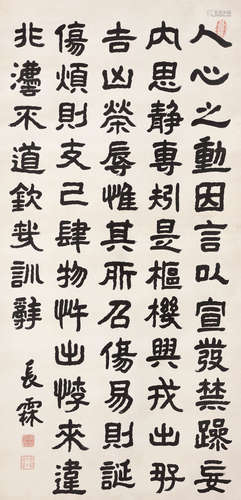 人心之動因言以宣發禁躁妄
內思靜專矧是樞機興戎出好
吉凶榮辱惟其所召傷易則誕
傷煩則支己肆物忤出悖來違
非灋不道欽哉訓辭
長霖